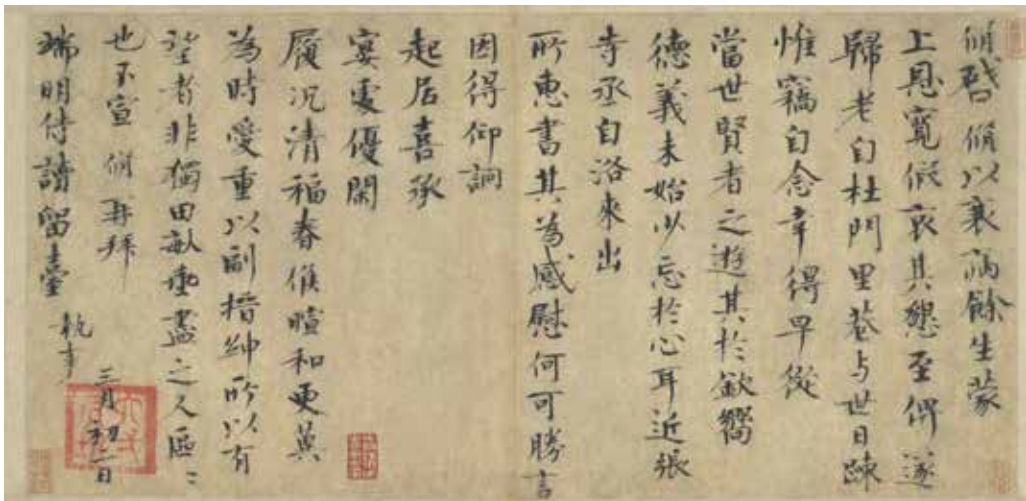 脩啓脩以衰病餘生蒙
上恩寬假哀其懇至俾遂
歸老自杜門里巷与世日踈
惟竊自念幸得早從
當世賢者之遊其於欽嚮
德義未始少忘於心耳近張
寺丞自洛來出
所惠書其為感慰何可勝言
因得仰詢
起居喜承
宴處優閑
履况清福春候暄和更冀
為時愛重以副搢紳所以有
望者非獨田畝垂盡之人區〻
也不宣 脩再拜
端明侍讀留臺 執事
三月初二日